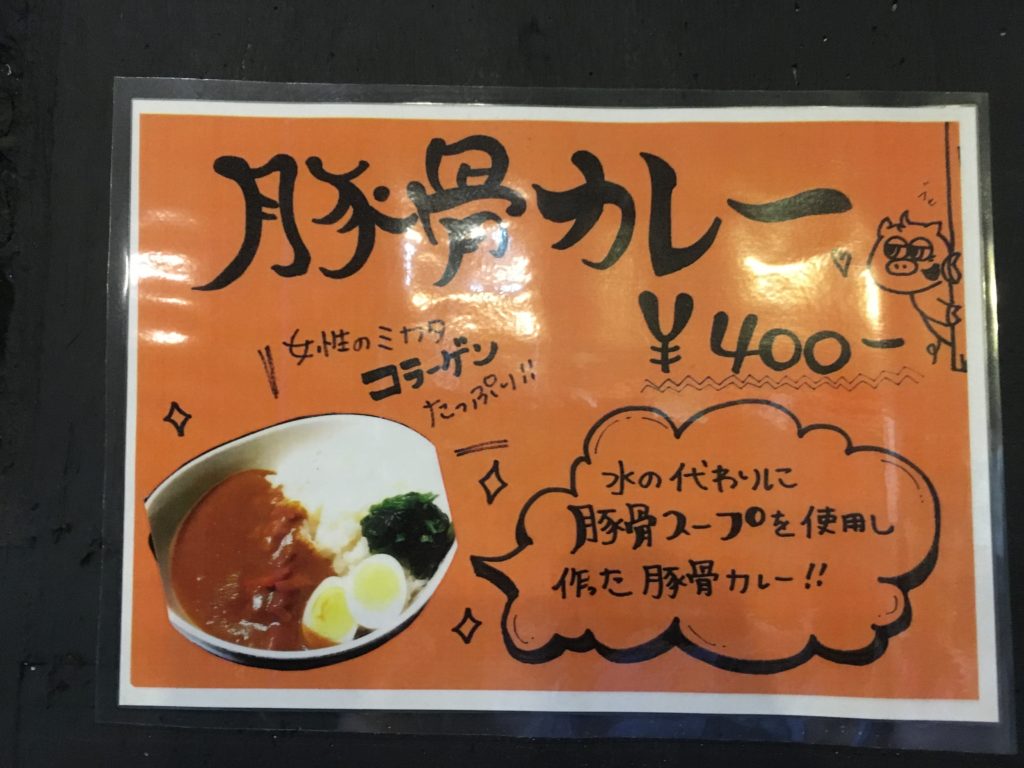 豚骨カレー
¥400-
女性のミカタ
コラーゲン
たっぷり!!
水の代わりに
豚骨スープを使用し
作った豚骨カレー!!